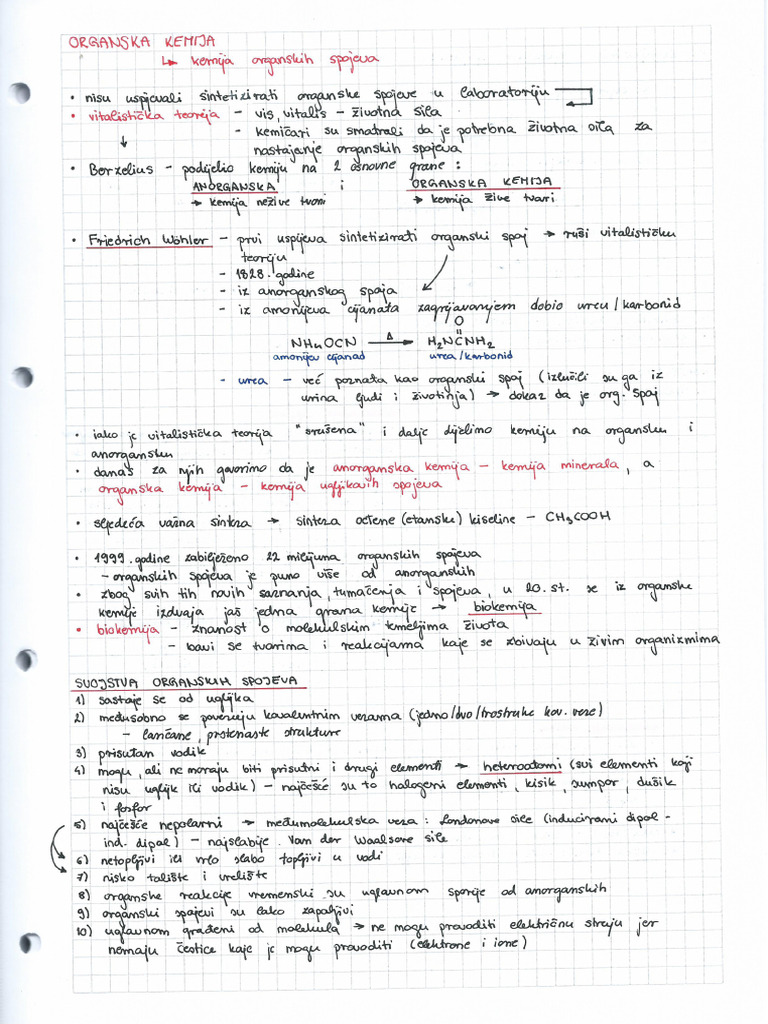 ORGANSKA KEMIJA
↳ kemija organskih spojeva
• nisu uspijevali sintetizirati organske spojeve u laboratoriju
• vitalistička teorija - vis, vitalis - životna sila
- kemičari su smatrali da je potrebna životna sila za
nastajanje organskih spojeva
• Berzelius - podijelio kemiju na 2 osnovne grane:
ANORGANSKA i ORGANSKA KEMIJA
→ kemija nežive tvari → kemija žive tvari
• Friedrich Wöhler - prvi uspijeva sintetizirati organski spoj → ruši vitalističku
teoriju
- 1828. godine
- iz anorganskog spoja
- iz amonijeva cijanata zagrijavanjem dobio ureu/karbonid
O
NH4OCN Δ→ H2NCNH2
amonijev cijanad urea/karbonid
- urea - već poznata kao organski spoj (izlučili su ga iz
urina ljudi i životinja) → dokaz da je org. spoj
• iako je vitalistička teorija "srušena" i dalje dijelimo kemiju na organsku i
anorgansku
• danas za njih govorimo da je anorganska kemija - kemija minerala, a
organska kemija - kemija ugljikovih spojeva
• sljedeća važna sinteza → sinteza octene (etanske) kiseline - CH3COOH
• 1999. godine zabilježeno 22 milijuna organskih spojeva
- organskih spojeva je puno više od anorganskih
• zbog svih tih novih saznanja, tumačenja i spojeva, u 20. st. se iz organske
kemije izdvaja još jedna grana kemije → biokemija
• biokemija - znanost o molekulskim temeljima života
- bavi se tvarima i reakcijama koje se zbivaju u živim organizmima
SVOJSTVA ORGANSKIH SPOJEVA
1) sastoje se od ugljika
2) međusobno se povezuju kovalentnim vezama (jedno/dvo/trostruke kov. veze)
- lančane, prstenaste strukture
3) prisutan vodik
4) mogu, ali ne moraju biti prisutni i drugi elementi → heteroatomi (svi elementi koji
nisu ugljik ili vodik) - najčešće su to halogeni elementi, kisik, sumpor, dušik
i fosfor
5) najčešće nepolarni → međumolekulska veza: Londonove sile (inducirani dipol -
ind. dipol) - najslabije Van der Waalsove sile
6) netopljivi ili vrlo slabo topljivi u vodi
7) nisko talište i vrelište
8) organske reakcije vremenski su uglavnom sporije od anorganskih
9) organski spojevi su lako zapaljivi
10) uglavnom građeni od molekula → ne mogu provoditi električnu struju jer
nemaju čestice koje je mogu provoditi (elektrone i ione)